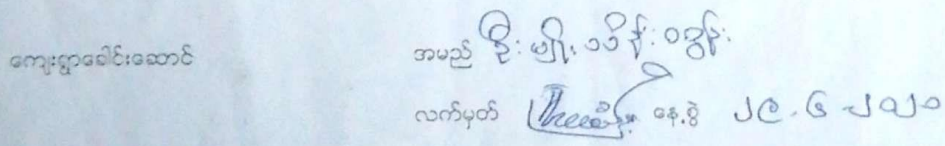 ကျေးရွာခေါင်းဆောင်
အမည် ဦး မျိုး သိန်း
လက်မှတ် နေ့စွဲ ၂၉.၆.၂၀၂၀